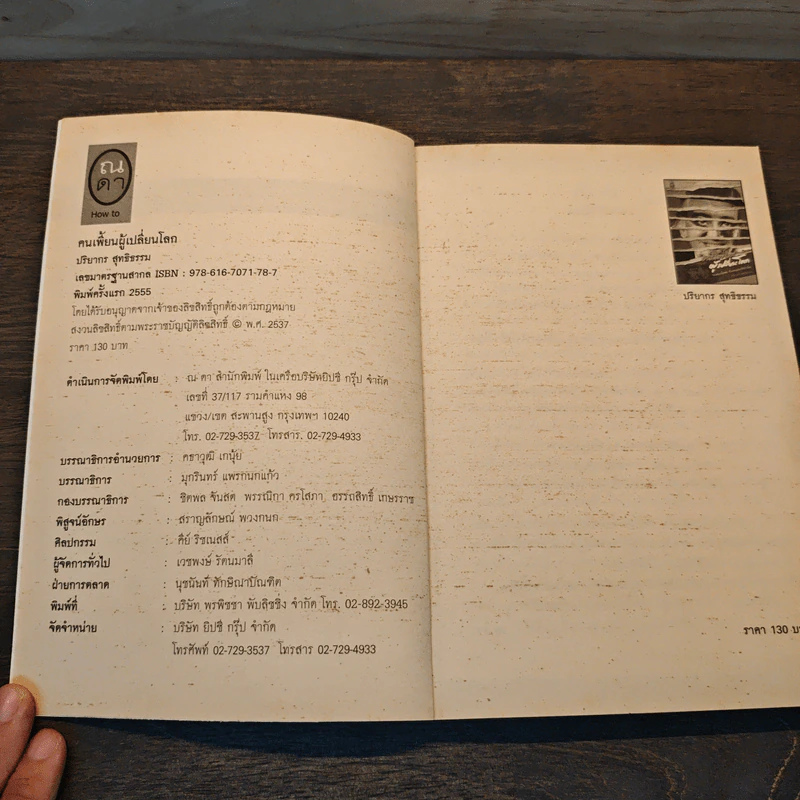 ณ
ดา
How to
คนเพี้ยนผู้เปลี่ยนโลก
ปริยากร สุทธิธรรม
เลขมาตรฐานสากล ISBN : 978-616-7071-78-7
พิมพ์ครั้งแรก 2555
โดยได้รับอนุญาตจากเจ้าของลิขสิทธิ์ถูกต้องตามกฎหมาย
สงวนลิขสิทธิ์ตามพระราชบัญญัติลิขสิทธิ์ © พ.ศ. 2537
ราคา 130 บาท
ดำเนินการจัดพิมพ์โดย : ณ ดา สำนักพิมพ์ ในเครือบริษัทยิปซี กรุ๊ป จำกัด
เลขที่ 37/117 รามคำแหง 98
แขวง/เขต สะพานสูง กรุงเทพฯ 10240
โทร. 02-729-3537 โทรสาร. 02-729-4933
บรรณาธิการอำนวยการ : คธาวุฒิ เกนุ้ย
บรรณาธิการ : มุกรินทร์ แพรกนกแก้ว
กองบรรณาธิการ : ชิตพล จันสด พรรณิกา ครโสภา อรรถสิทธิ์ เกษรราช
พิสูจน์อักษร : สราญลักษณ์ พวงกนก
ศิลปกรรม : คีย์ ริชเนสส์
ผู้จัดการทั่วไป : เวชพงษ์ รัตนมาลี
ฝ่ายการตลาด : นุชนันท์ ทักษิณาบัณฑิต
พิมพ์ที่ : บริษัท พรพิชชา พับลิชชิ่ง จำกัด โทร. 02-892-3945
จัดจำหน่าย : บริษัท ยิปซี กรุ๊ป จำกัด
โทรศัพท์ 02-729-3537 โทรสาร 02-729-4933
ปริยากร สุทธิธรรม
ราคา 130